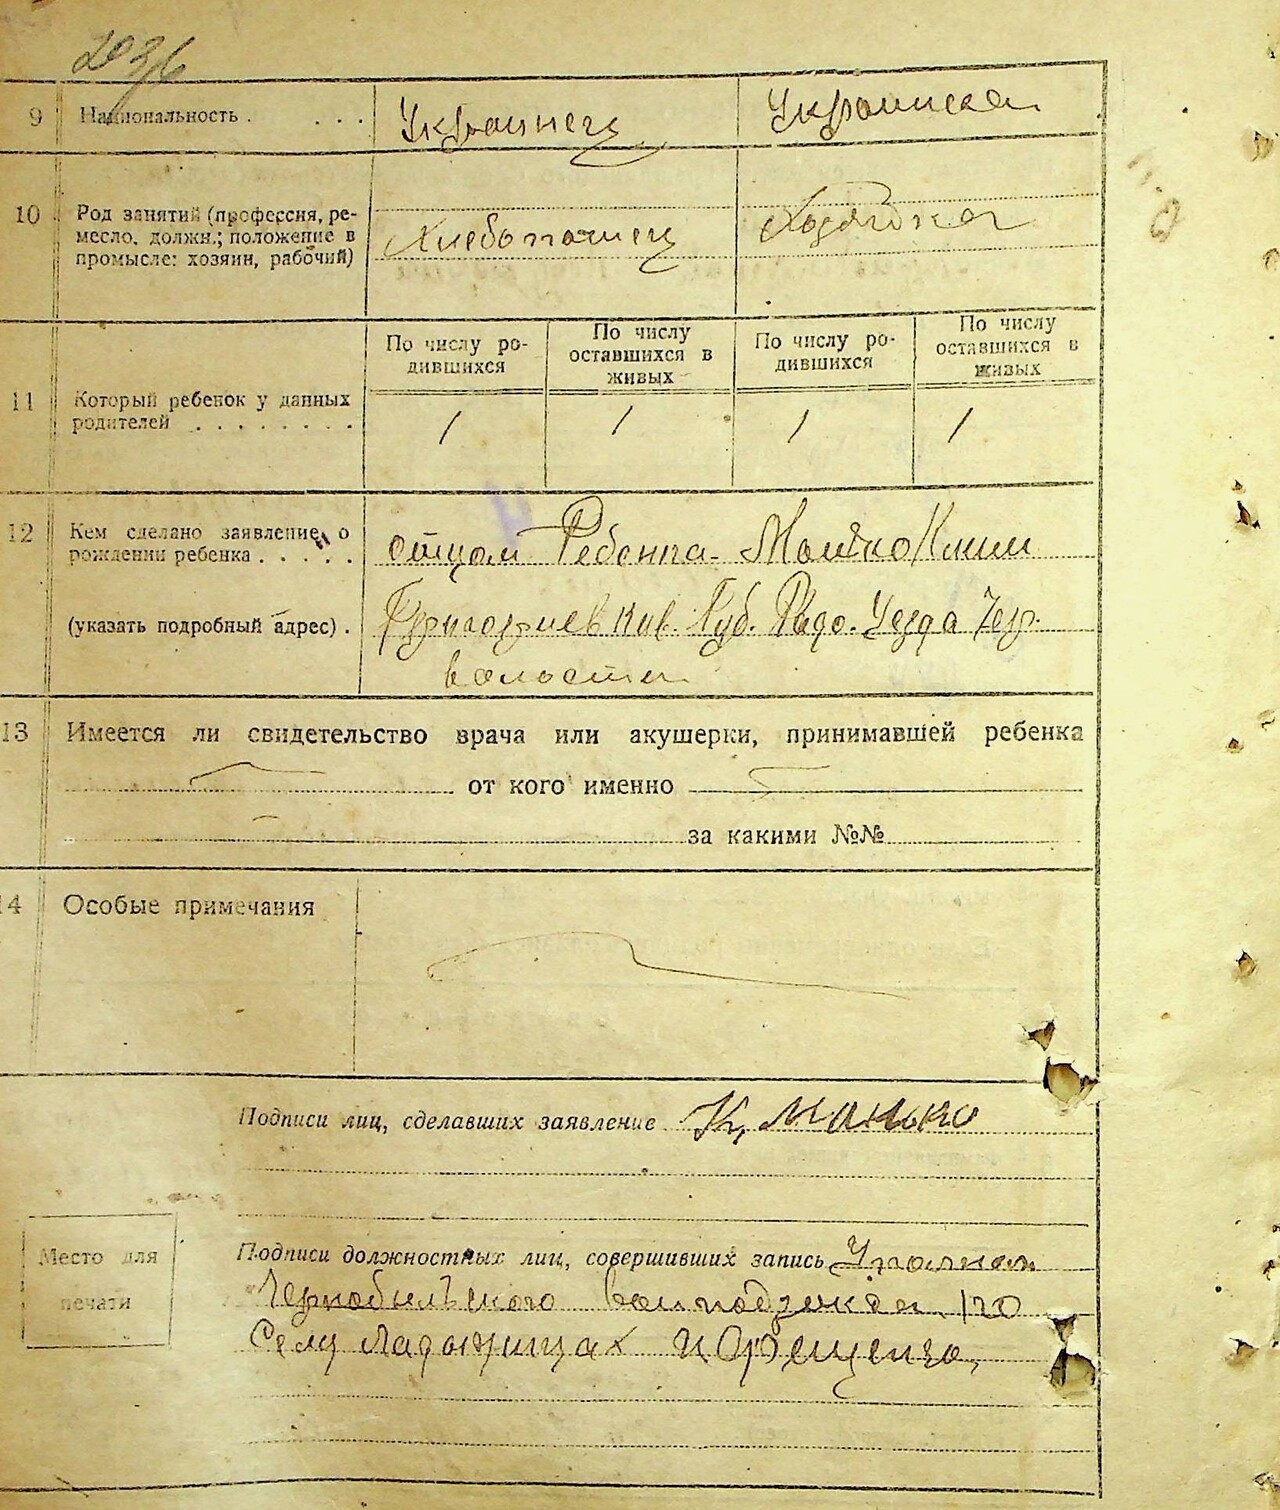 203
9 Национальность . . . . Украинец Украинка
10 Род занятий (профессия, ре-
месло, должн.; положение в
промысле: хозяин, рабочий)
Хлебопашец Хозяйка
По числу ро-
дившихся
По числу
оставшихся в
живых
По числу ро-
дившихся
По числу
оставшихся в
живых
11 Который ребенок у данных
родителей . . . . . . . .
1 1 1 1
12 Кем сделано заявление о
рождении ребенка . . . . .
отцом Ребенка
(указать подробный адрес) . Киев. Губ. Радо. Уезда Чер.
волости
13 Имеется ли свидетельство врача или акушерки, принимавшей ребенка
от кого именно
за какими №№
14 Особые примечания
Подписи лиц, сделавших заявление К. Манько
Место для
печати
Подписи должностных лиц, совершивших запись
Чернобильского
Селу Ладыжицах